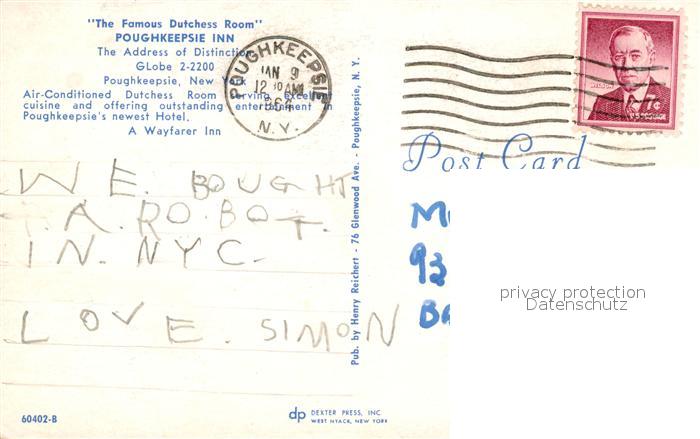 "The Famous Dutchess Room"
POUGHKEEPSIE INN
The Address of Distinction
GLobe 2-2200
Poughkeepsie, New York
Air-Conditioned Dutchess Room serving Excellent
cuisine and offering outstanding entertainment in
Poughkeepsie's newest Hotel.
A Wayfarer Inn
POUGHKEEPSIE
JAN 9
12 30 AM
1964
N.Y.
WILSON
7¢
U.S. POSTAGE
Post Card
WE. BOUGHT
.A. RO.BOT.
IN. NYC.
LOVE. SIMON
Pub. by Henry Reichert - 76 Glenwood Ave. - Poughkeepsie, N. Y.
93
privacy protection
Datenschutz
60402-B
dp DEXTER PRESS, INC.
WEST NYACK, NEW YORK